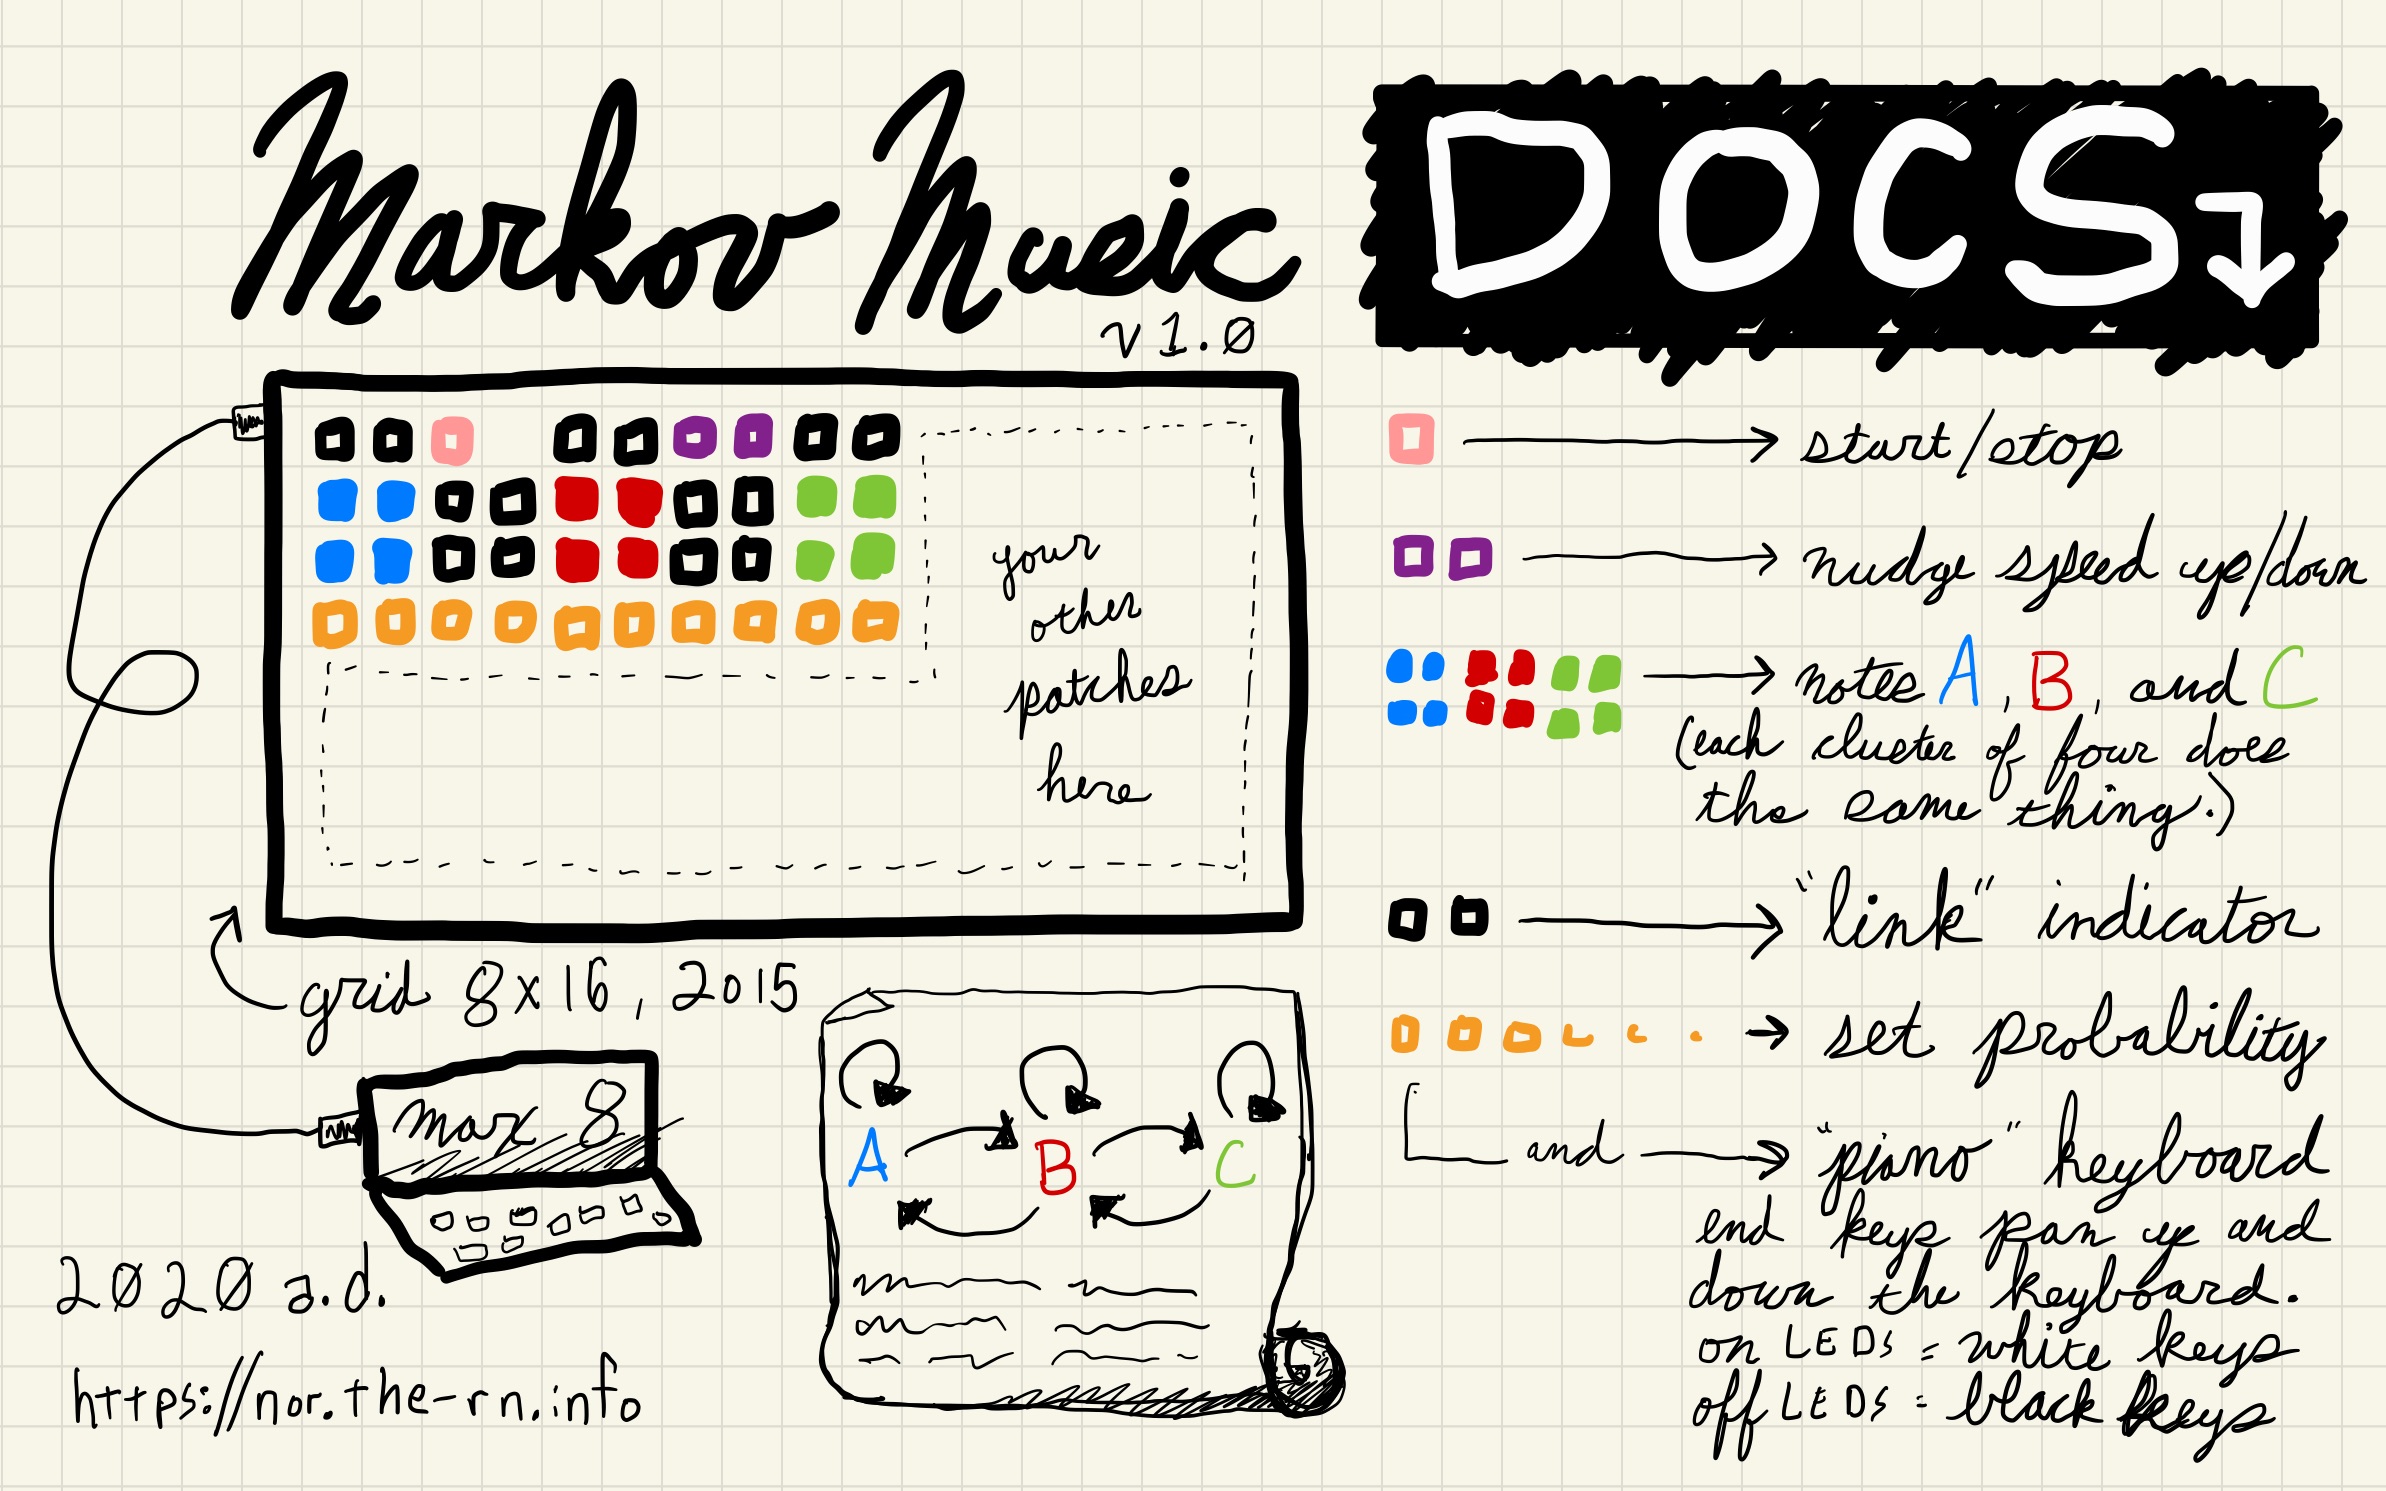 Markov Music
v 1.0
DOCS
your
other
patches
here
grid 8x16, 2015
max 8
2020 a.d.
https://nor.the-rn.info
A B C
start/stop
nudge speed up/down
notes A, B, and C
(each cluster of four does
the same thing.)
"link" indicator
set probability
and "piano" keyboard
end keys pan up and
down the keyboard.
on LEDs = white keys
off LEDs = black keys